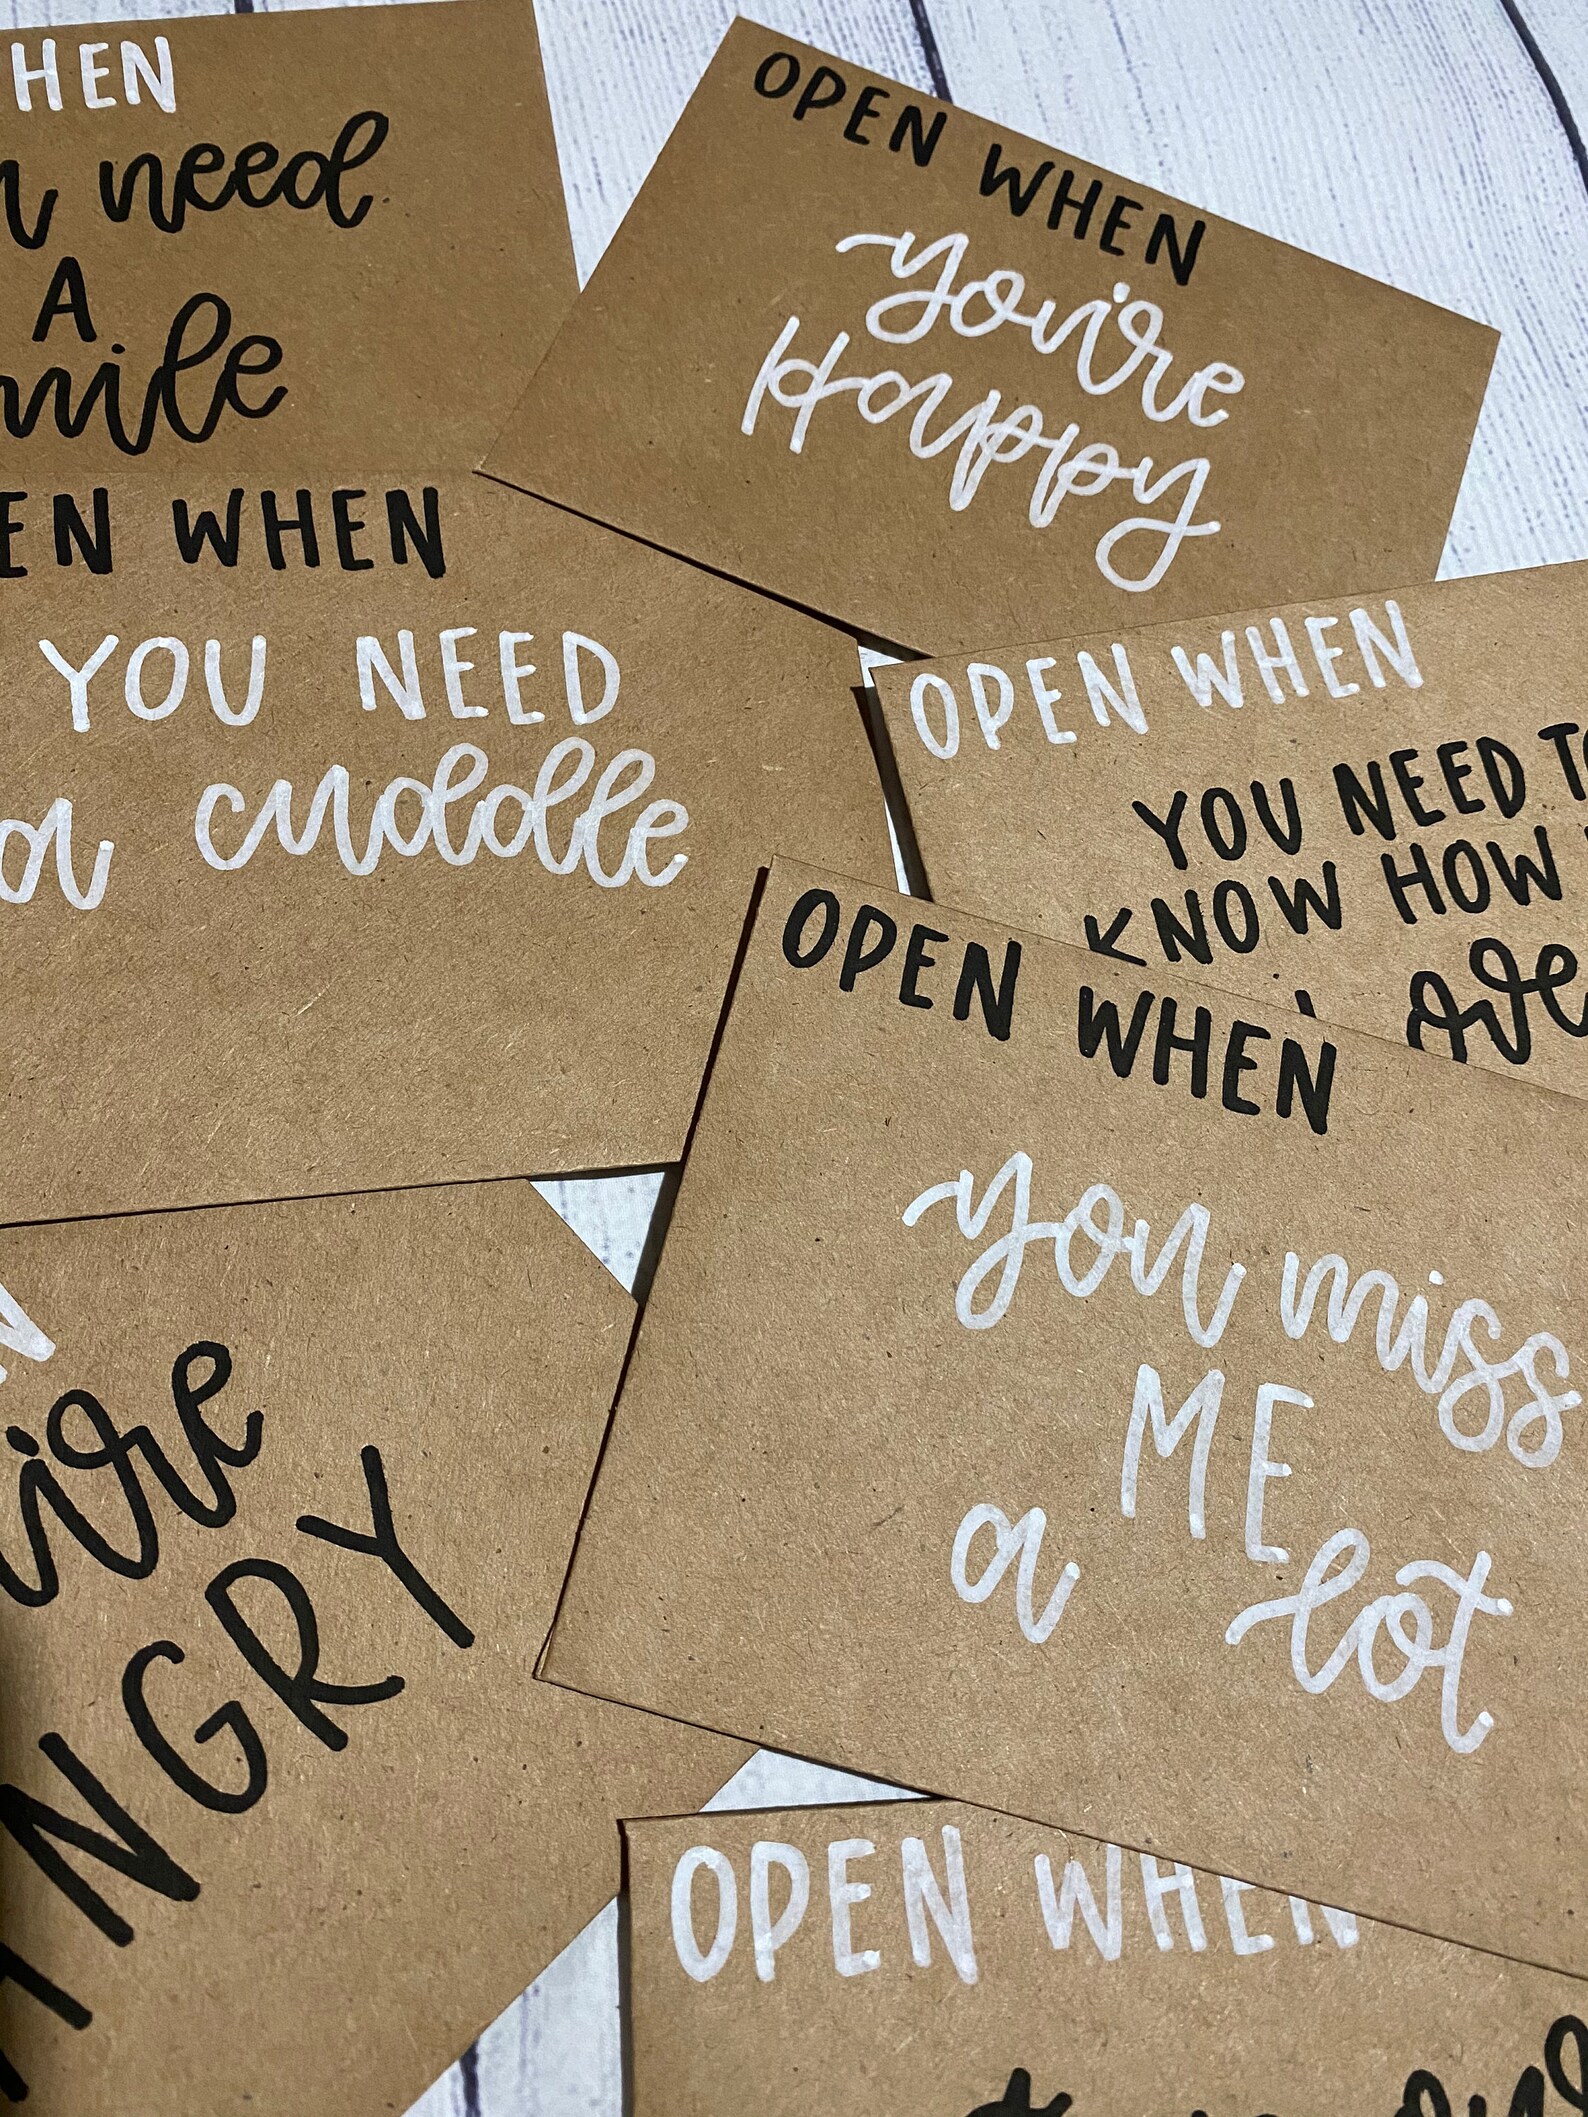 HEN
need
A
mile
OPEN WHEN
you're
Happy
EN WHEN
YOU NEED
a cuddle
OPEN WHEN
YOU NEED TO
KNOW HOW
OPEN WHEN
you miss
ME
a lot
N
're
NGRY
OPEN WHEN